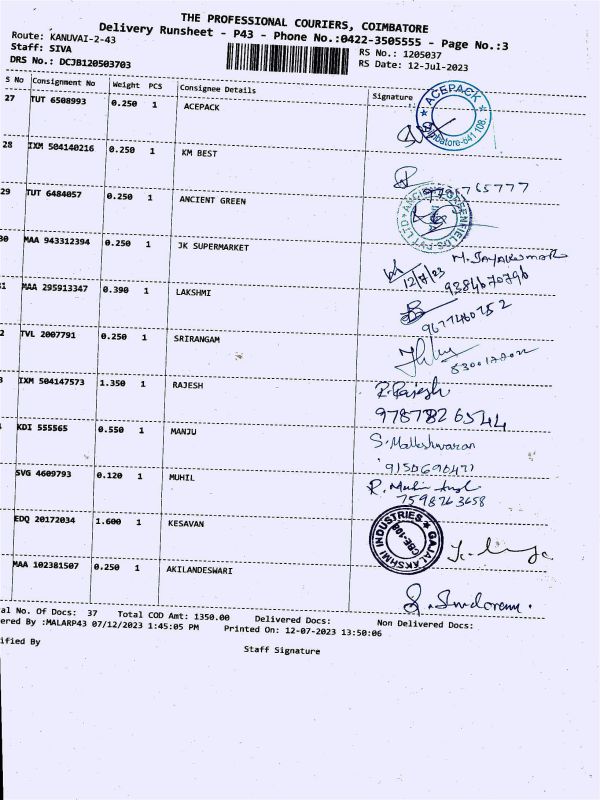 THE PROFESSIONAL COURIERS, COIMBATORE
Delivery Runsheet - P43 - Phone No.:0422-3505555 - Page No.:3
Route: KANUVAI-2-43
Staff: SIVA
DRS No.: DCJB120503703
RS No.: 1205037
RS Date: 12-Jul-2023
S No Consignment No Weight PCS Consignee Details Signature
27 TUT 6508993 0.250 1 ACEPACK
ACEPACK
28 IXM 504140216 0.250 1 KM BEST
29 TUT 6484057 0.250 1 ANCIENT GREEN
30 MAA 943312394 0.250 1 JK SUPERMARKET
12/7/23 M. JAYAKUMAR
9384670796
31 MAA 295913347 0.390 1 LAKSHMI
2 TVL 2007791 0.250 1 SRIRANGAM
3 IXM 504147573 1.350 1 RAJESH
R. Rajesh
9787826544
KDI 555565 0.550 1 MANJU
S. Malleshwaran
9150690471
SVG 4609793 0.120 1 MUHIL
7598743658
EDQ 20172034 1.600 1 KESAVAN
GAJALAKSHMI INDUSTRIES
CBE-108
MAA 102381507 0.250 1 AKILANDESWARI
al No. Of Docs: 37 Total COD Amt: 1350.00 Delivered Docs: Non Delivered Docs:
ered By :MALARP43 07/12/2023 1:45:05 PM Printed On: 12-07-2023 13:50:06
ified By Staff Signature